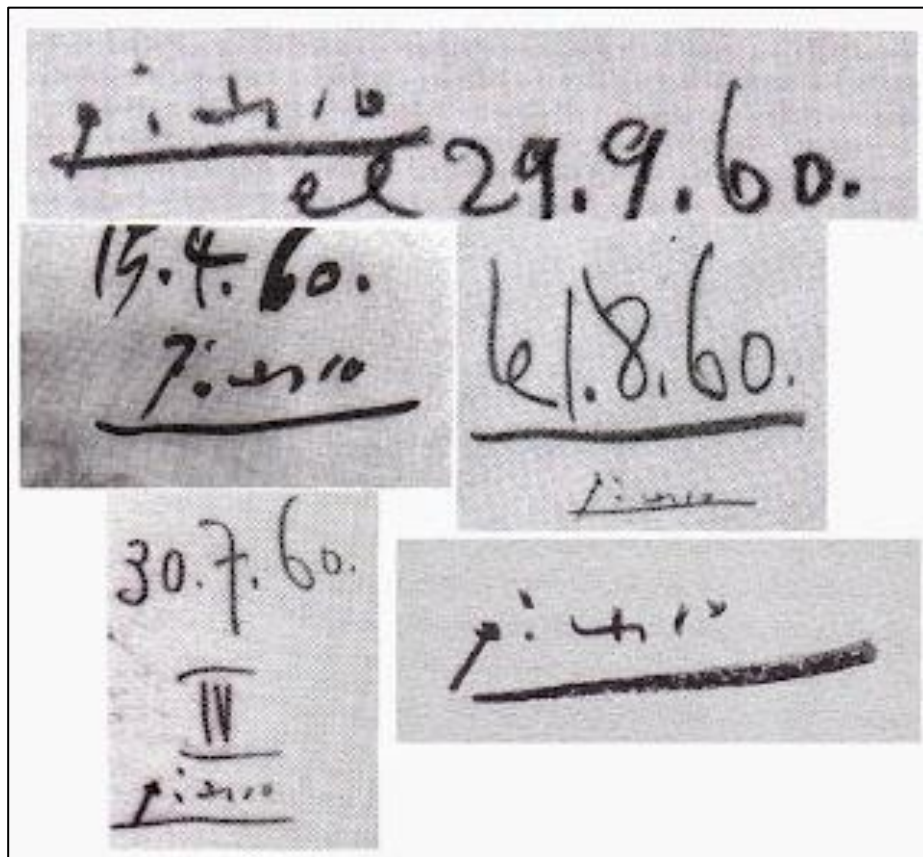 Picasso
el 29.9.60.
15.4.60.
Picasso
el 1.8.60.
Picasso
30.7.60.
IV
Picasso
Picasso